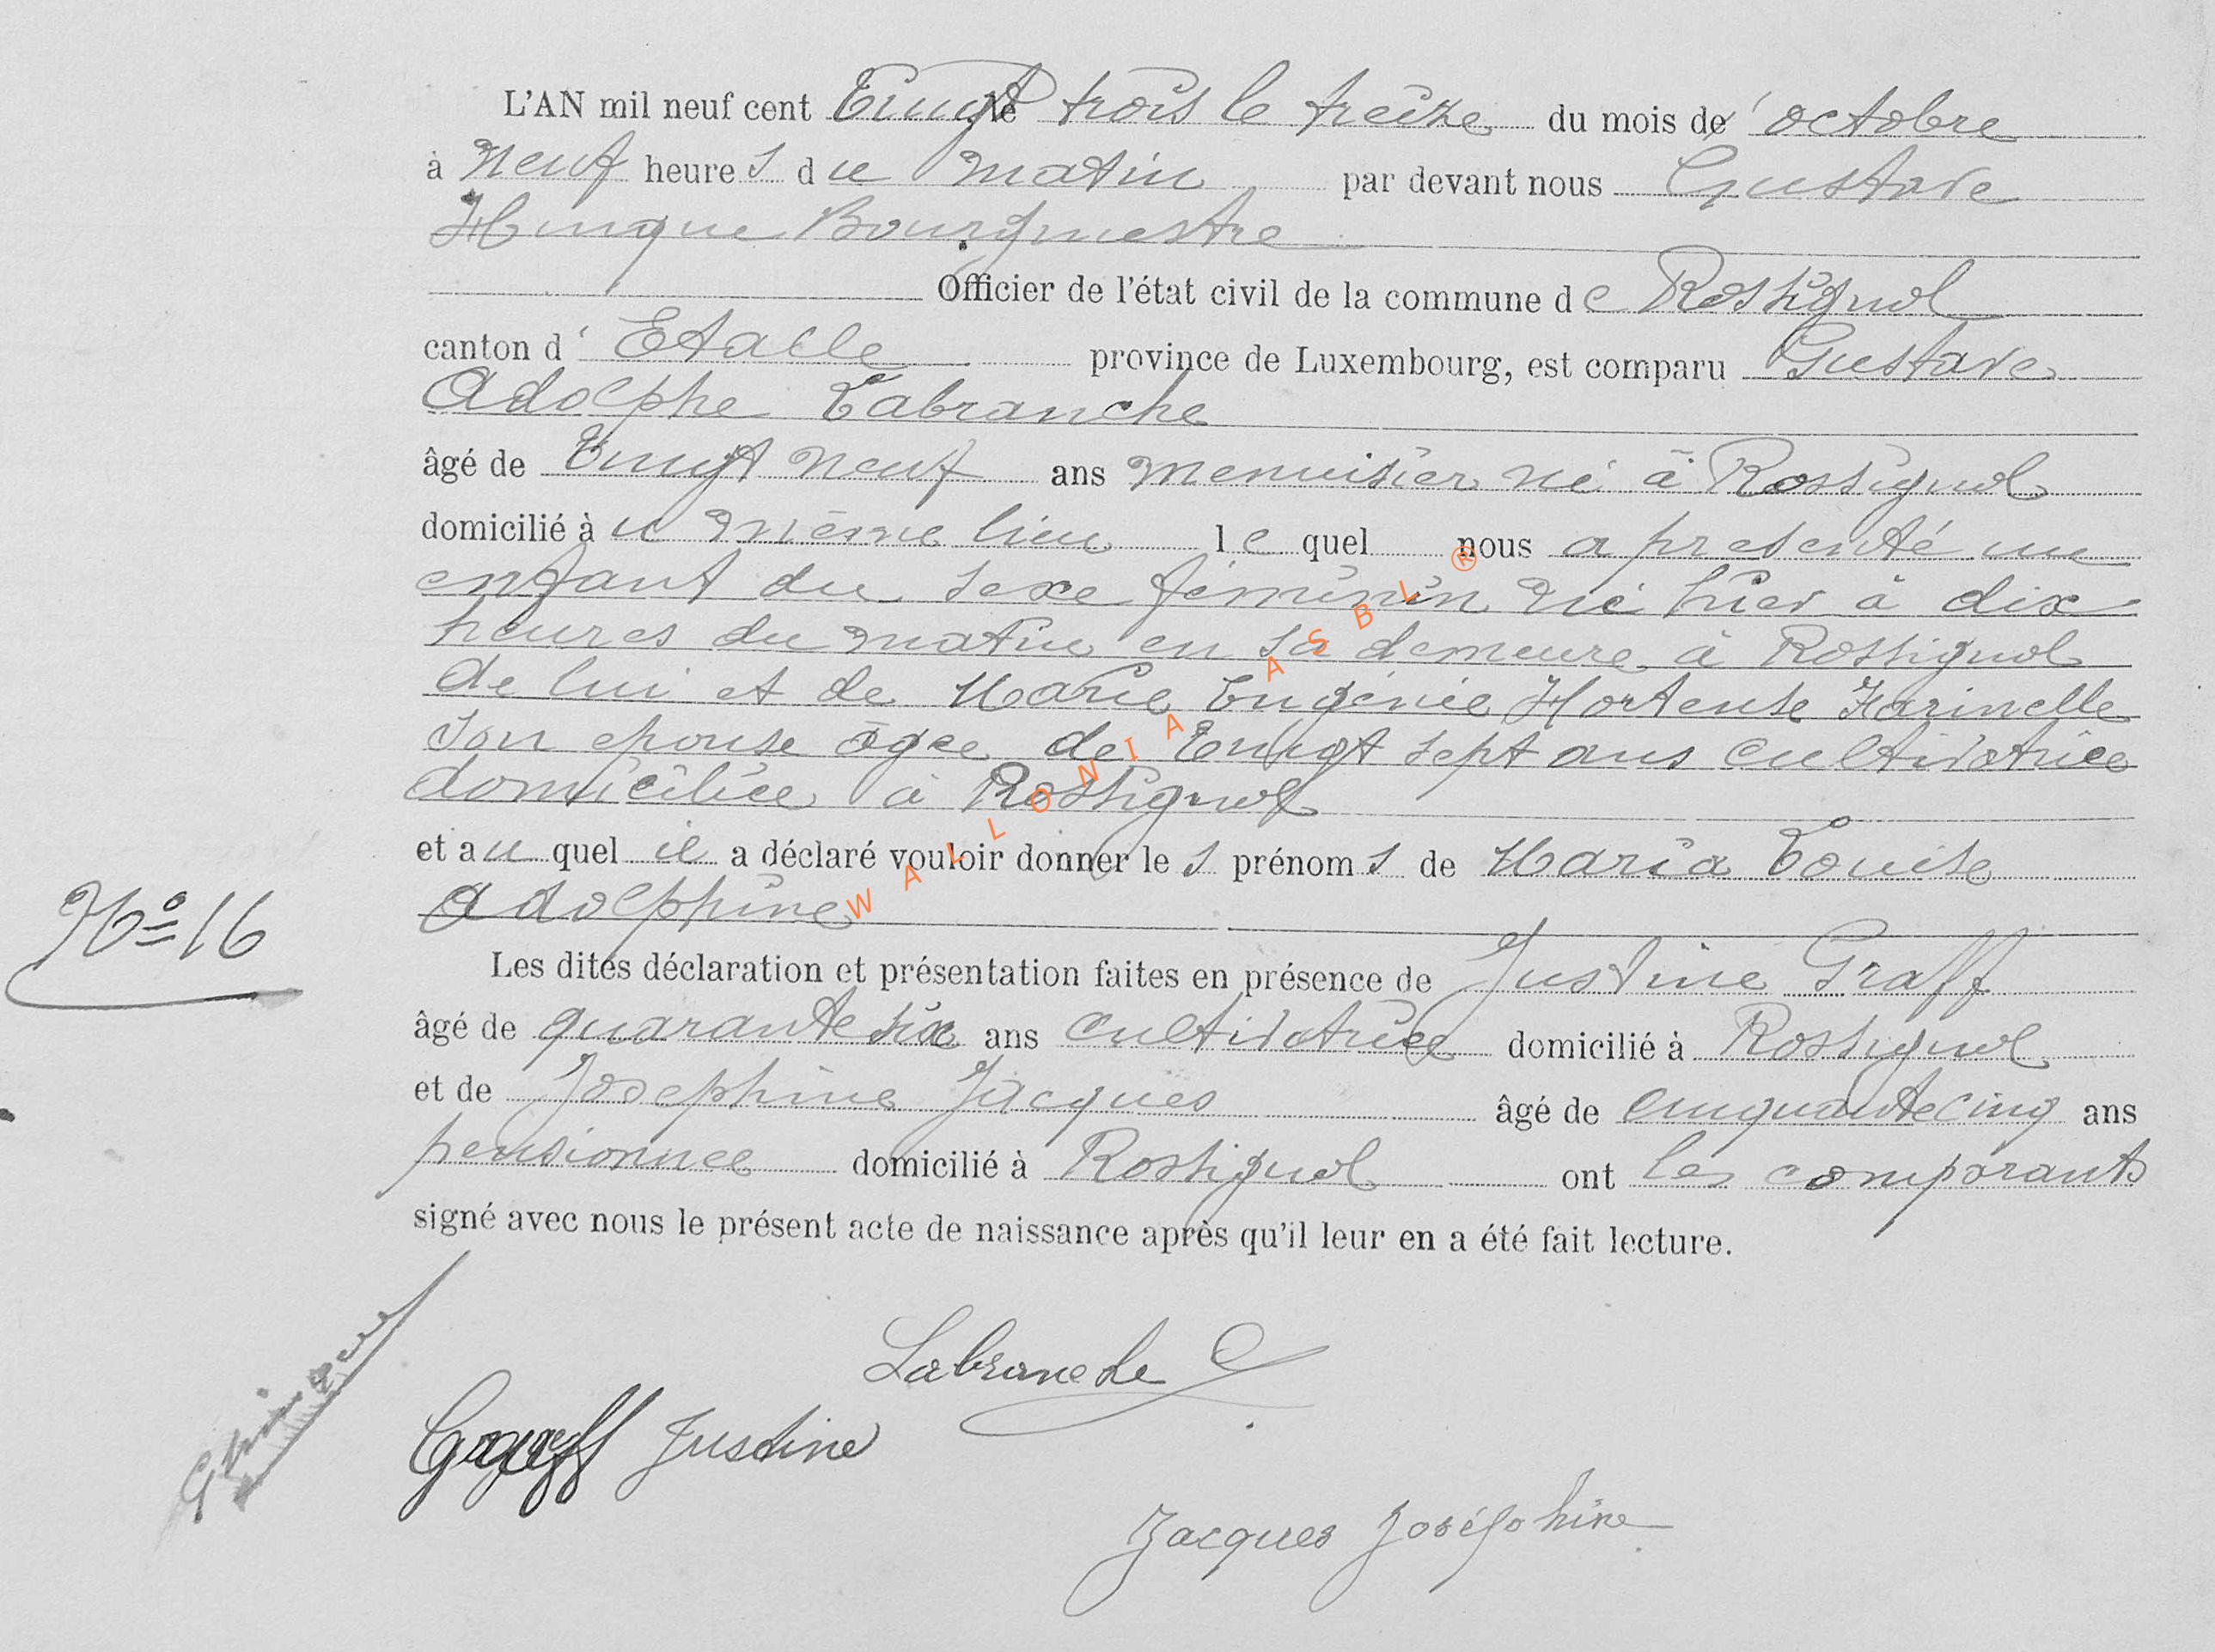 L'AN mil neuf cent Vingt trois le treize du mois d'octobre
à neuf heures du matin par devant nous Gustave
Hinque Bourgmestre
Officier de l'état civil de la commune de Rossignol
canton d'Etalle province de Luxembourg, est comparu Gustave
Adolphe Labranche
âgé de Vingt neuf ans menuisier né à Rossignol
domicilié au même lieu lequel nous a presenté un
enfant du sexe féminin né hier à dix
heures du matin en sa demeure à Rossignol
de lui et de Marie Eugénie Hortense Farinelle
son epouse âgée de Vingt sept ans cultivatrice
domiciliée à Rossignol
et auquel il a déclaré vouloir donner les prénoms de Maria Louise
Adolphine
N° 16
Les dites déclaration et présentation faites en présence de Justine Graff
âgé de quarante six ans cultivatrice domicilié à Rossignol
et de Josephine Jacques âgé de cinquante cinq ans
pensionnee domicilié à Rossignol ont les comparants
signé avec nous le présent acte de naissance après qu'il leur en a été fait lecture.
Labranche
Graff Justine
Jacques Joséphine
WALLONIA ASBL ®